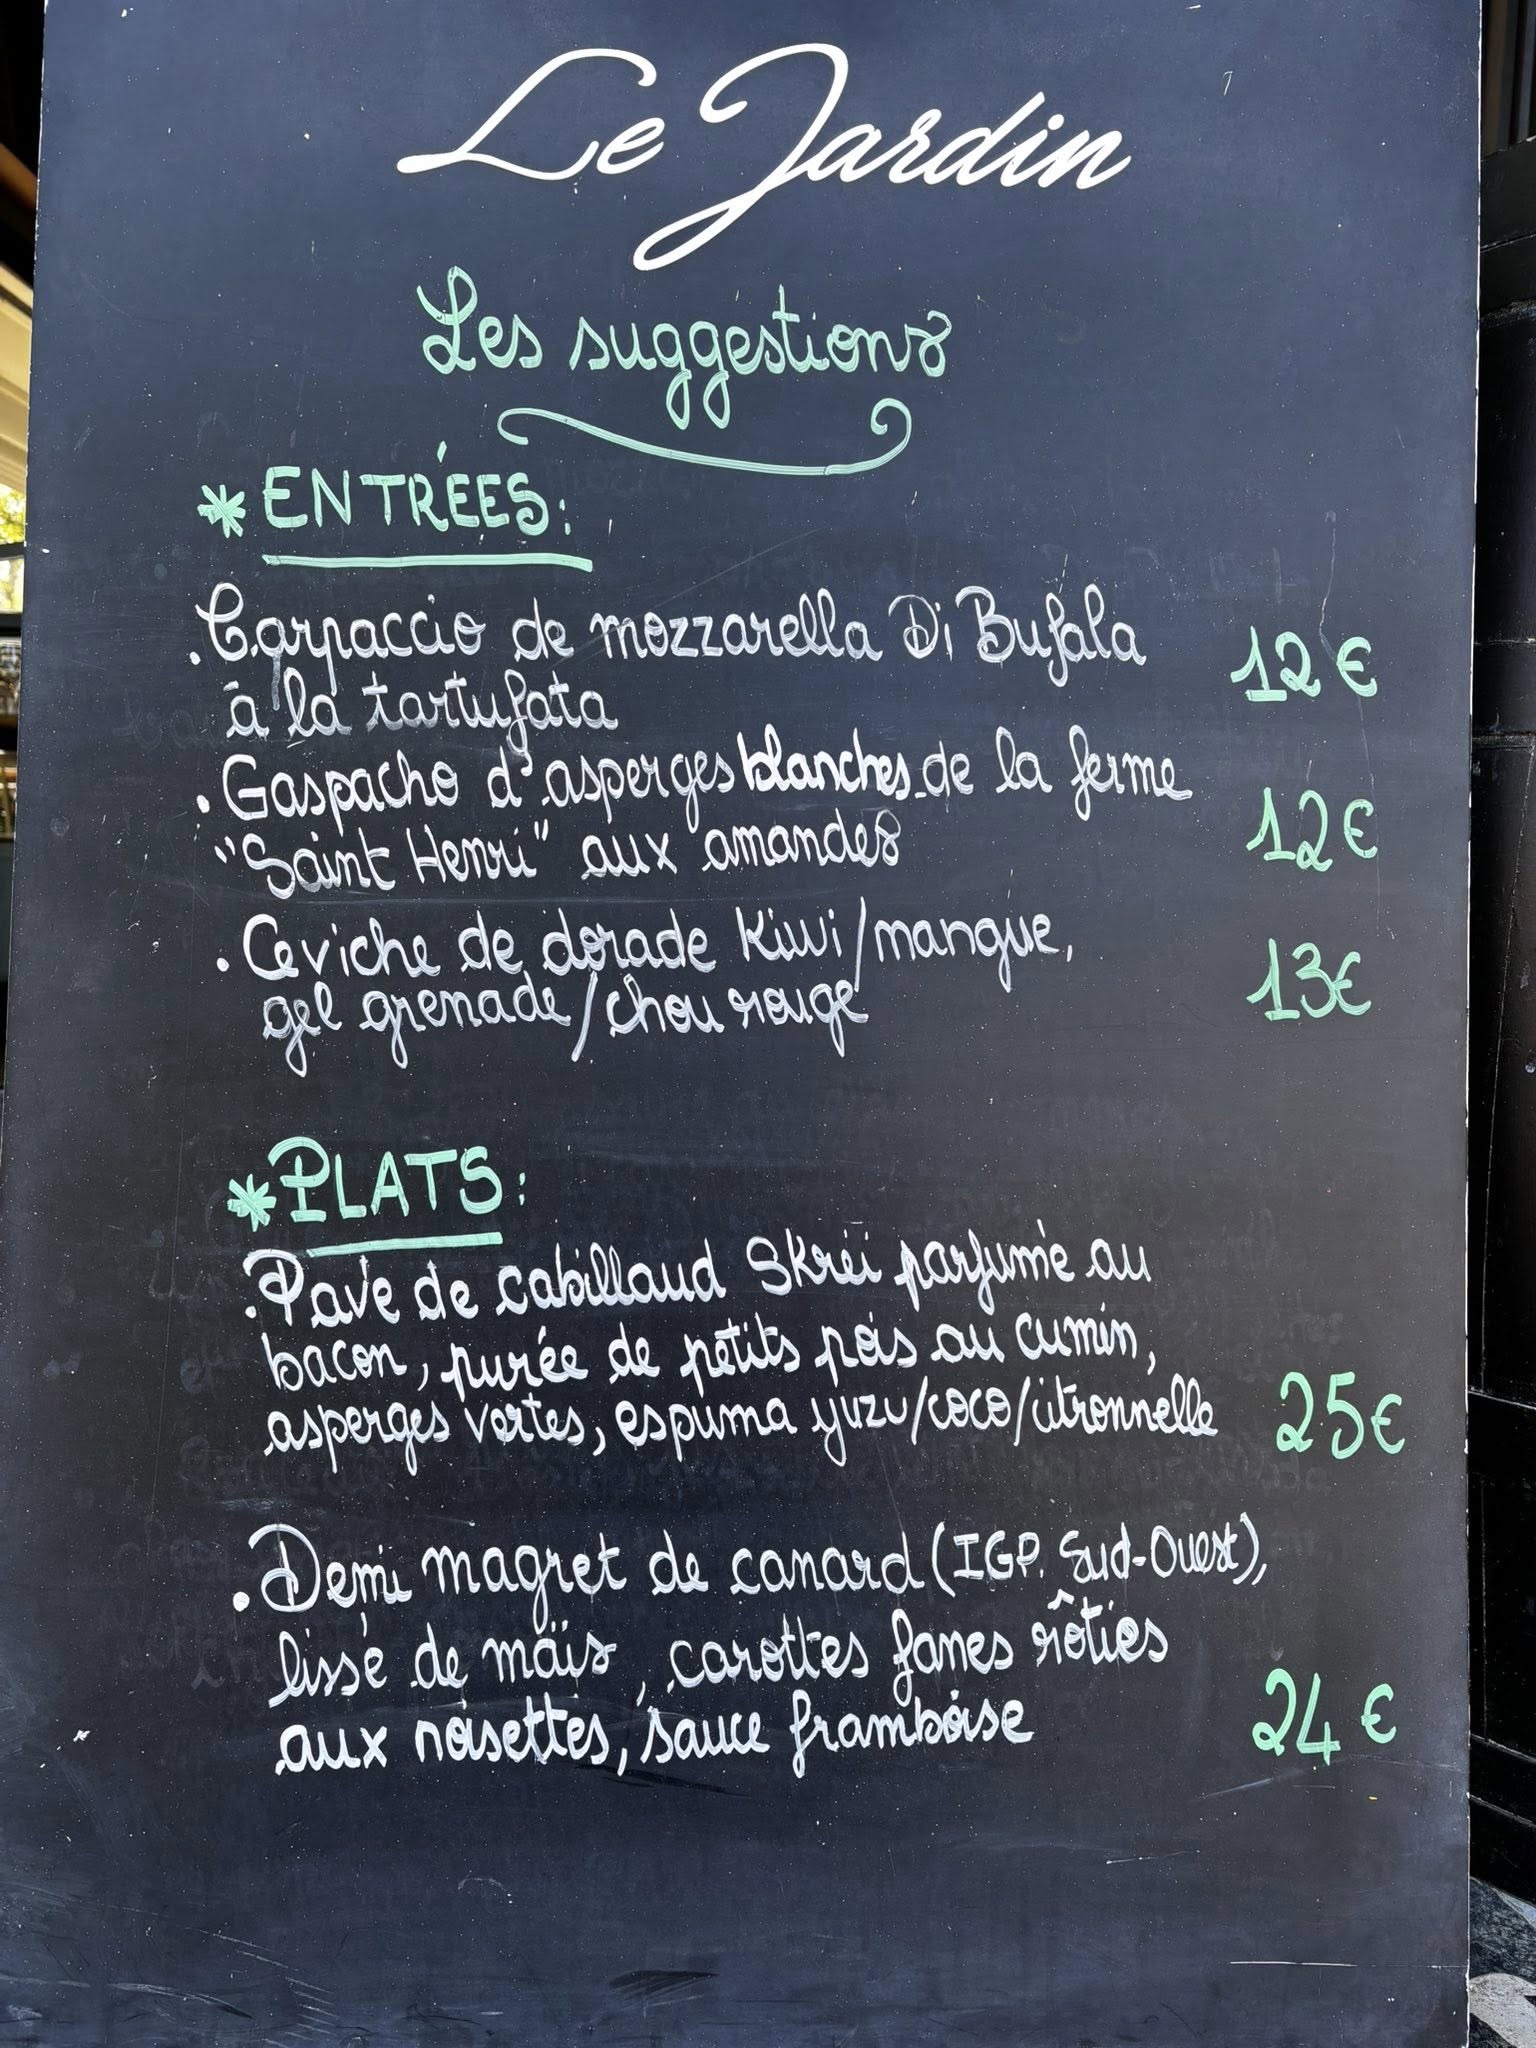 Le Jardin
Les suggestions
*ENTRÉES:
. Carpaccio de mozzarella Di Bufala
à la tartufata 12€
. Gaspacho d'asperges blanches de la ferme
"Saint Henri" aux amandes 12€
. Ceviche de dorade Kiwi/mangue,
gel grenade/chou rouge 13€
*PLATS:
. Pavé de cabillaud Skreï parfumé au
bacon, purée de petits pois au cumin,
asperges vertes, espuma yuzu/coco/citronnelle 25€
. Demi magret de canard (IGP. Sud-Ouest),
lissé de maïs, carottes fanes rôties
aux noisettes, sauce framboise 24€